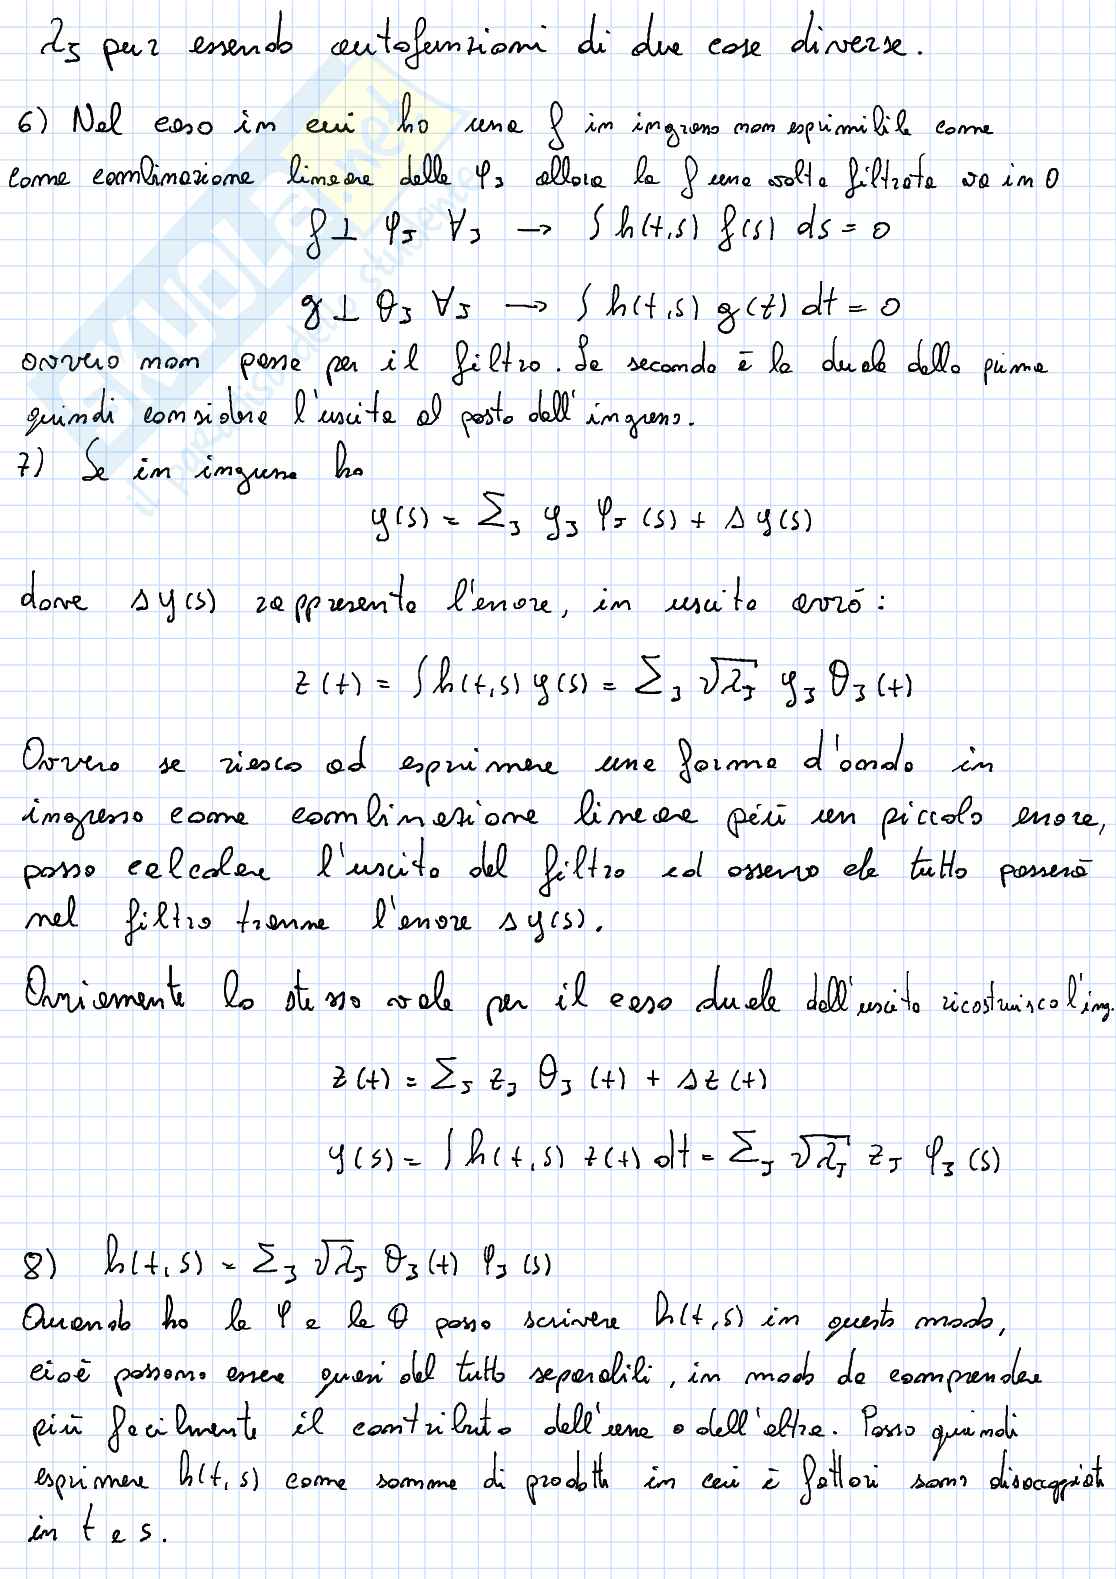 λ_J pur essendo autofunzioni di due cose diverse.
6) Nel caso in cui ho una f in ingresso non esprimibile come
come combinazione lineare delle φ_J allora la f una volta filtrata va in 0
f ⊥ φ_J ∀_J → ∫ h(t,s) f(s) ds = 0
g ⊥ θ_J ∀_J → ∫ h(t,s) g(t) dt = 0
ovvero non passa per il filtro. La seconda è la duale della prima
quindi considera l'uscita al posto dell'ingresso.
7) Se in ingresso ho
y(s) = Σ_J y_J φ_J (s) + Δ y(s)
dove Δ y(s) rappresenta l'errore, in uscita avrò:
z(t) = ∫ h(t,s) y(s) = Σ_J √λ_J y_J θ_J (t)
Ovvero se riesco ad esprimere una forma d'onda in
ingresso come combinazione lineare più un piccolo errore,
posso calcolare l'uscita del filtro ed osservo che tutto passerà
nel filtro tranne l'errore Δ y(s).
Ovviamente lo stesso vale per il caso duale dall'uscita ricostruisco l'ing.
z(t) = Σ_J z_J θ_J (t) + Δ z(t)
y(s) = ∫ h(t,s) z(t) dt = Σ_J √λ_J z_J φ_J (s)
8) h(t,s) = Σ_J √λ_J θ_J (t) φ_J (s)
Quando ho le φ e le θ posso scrivere h(t,s) in questo modo,
cioè possono essere quasi del tutto separabili, in modo da comprendere
più facilmente il contributo dell'una o dell'altra. Posso quindi
esprimere h(t,s) come somme di prodotti in cui i fattori sono disaccoppiati
in t e s.